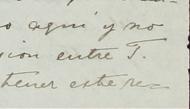 o aquí y no
sion entre T.
tener este re-